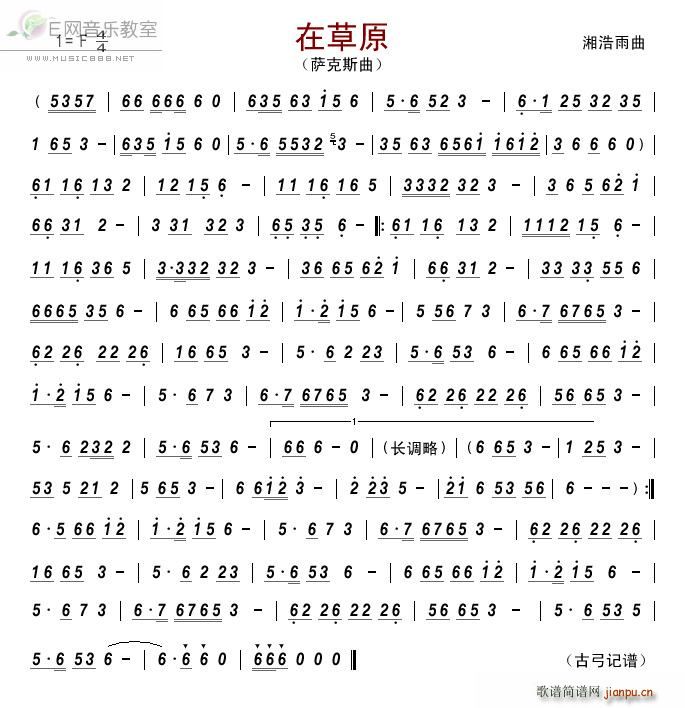 E网音乐教室
1=F 4/4
WWW.MUSIC888.NET
在草原
（萨克斯曲）
湘浩雨曲
( 5357 | 66 666 6 0 | 635 63 i 5 6 | 5·6 52 3 - | 6·1 25 32 35 |
1 65 3 - | 635 i5 60 | 5·6 5532 5 3 - | 35 63 656i i6i2 | 3 6 6 6 0 ) |
61 16 13 2 | 12 15 6 - | 11 16 16 5 | 3332 32 3 - | 3 6 5 62 i |
66 31 2 - | 3 31 32 3 | 65 35 6 - |: 61 16 13 2 | 1112 15 6 - |
11 16 36 5 | 3·332 32 3 - | 36 65 62 i | 66 31 2 - | 33 33 55 6 |
6665 35 6 - | 6 65 66 i2 | i·2 i5 6 - | 5 56 7 3 | 6·7 6765 3 - |
62 26 22 26 | 16 65 3 - | 5·6 2 23 | 5·6 53 6 - | 6 65 66 i2 |
i·2 i5 6 - | 5·6 7 3 | 6·7 6765 3 - | 62 26 22 26 | 56 65 3 - |
1
5·6 232 2 | 5·6 53 6 - | 66 6 - 0 | (长调略) | (6 65 3 - | 1 25 3 - |
53 5 21 2 | 5 65 3 - | 6 6i2 3 - | 2 23 5 - | 2i 6 53 56 | 6 - - - ) :|
6·5 66 i2 | i·2 i5 6 - | 5·6 7 3 | 6·7 6765 3 - | 62 26 22 26 |
16 65 3 - | 5·6 2 23 | 5·6 53 6 - | 6 65 66 i2 | i·2 i5 6 - |
5·6 7 3 | 6·7 6765 3 - | 62 26 22 26 | 56 65 3 - | 5·6 53 5 |
5·6 53 6 - | 6·6 6 0 | 666 0 0 0 ||
（古弓记谱）
歌谱简谱网
jianpu.cn